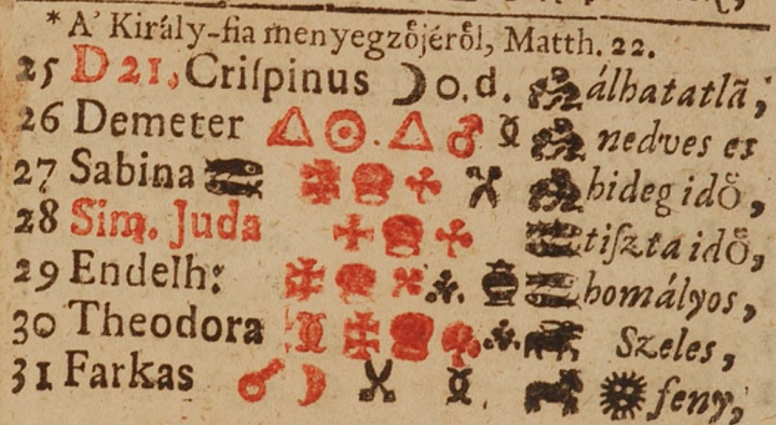 * A' Király-fia menyegzőjéről, Matth. 22.
25 D 21, Criſpinus ☽ o. d. álhatatlã,
26 Demeter △ ☉. △ ♂ nedves es
27 Sabina hideg idő,
28 Sim. Juda tiſzta idő,
29 Endelh: homályos,
30 Theodora Szeles,
31 Farkas ♂ ☽ feny,